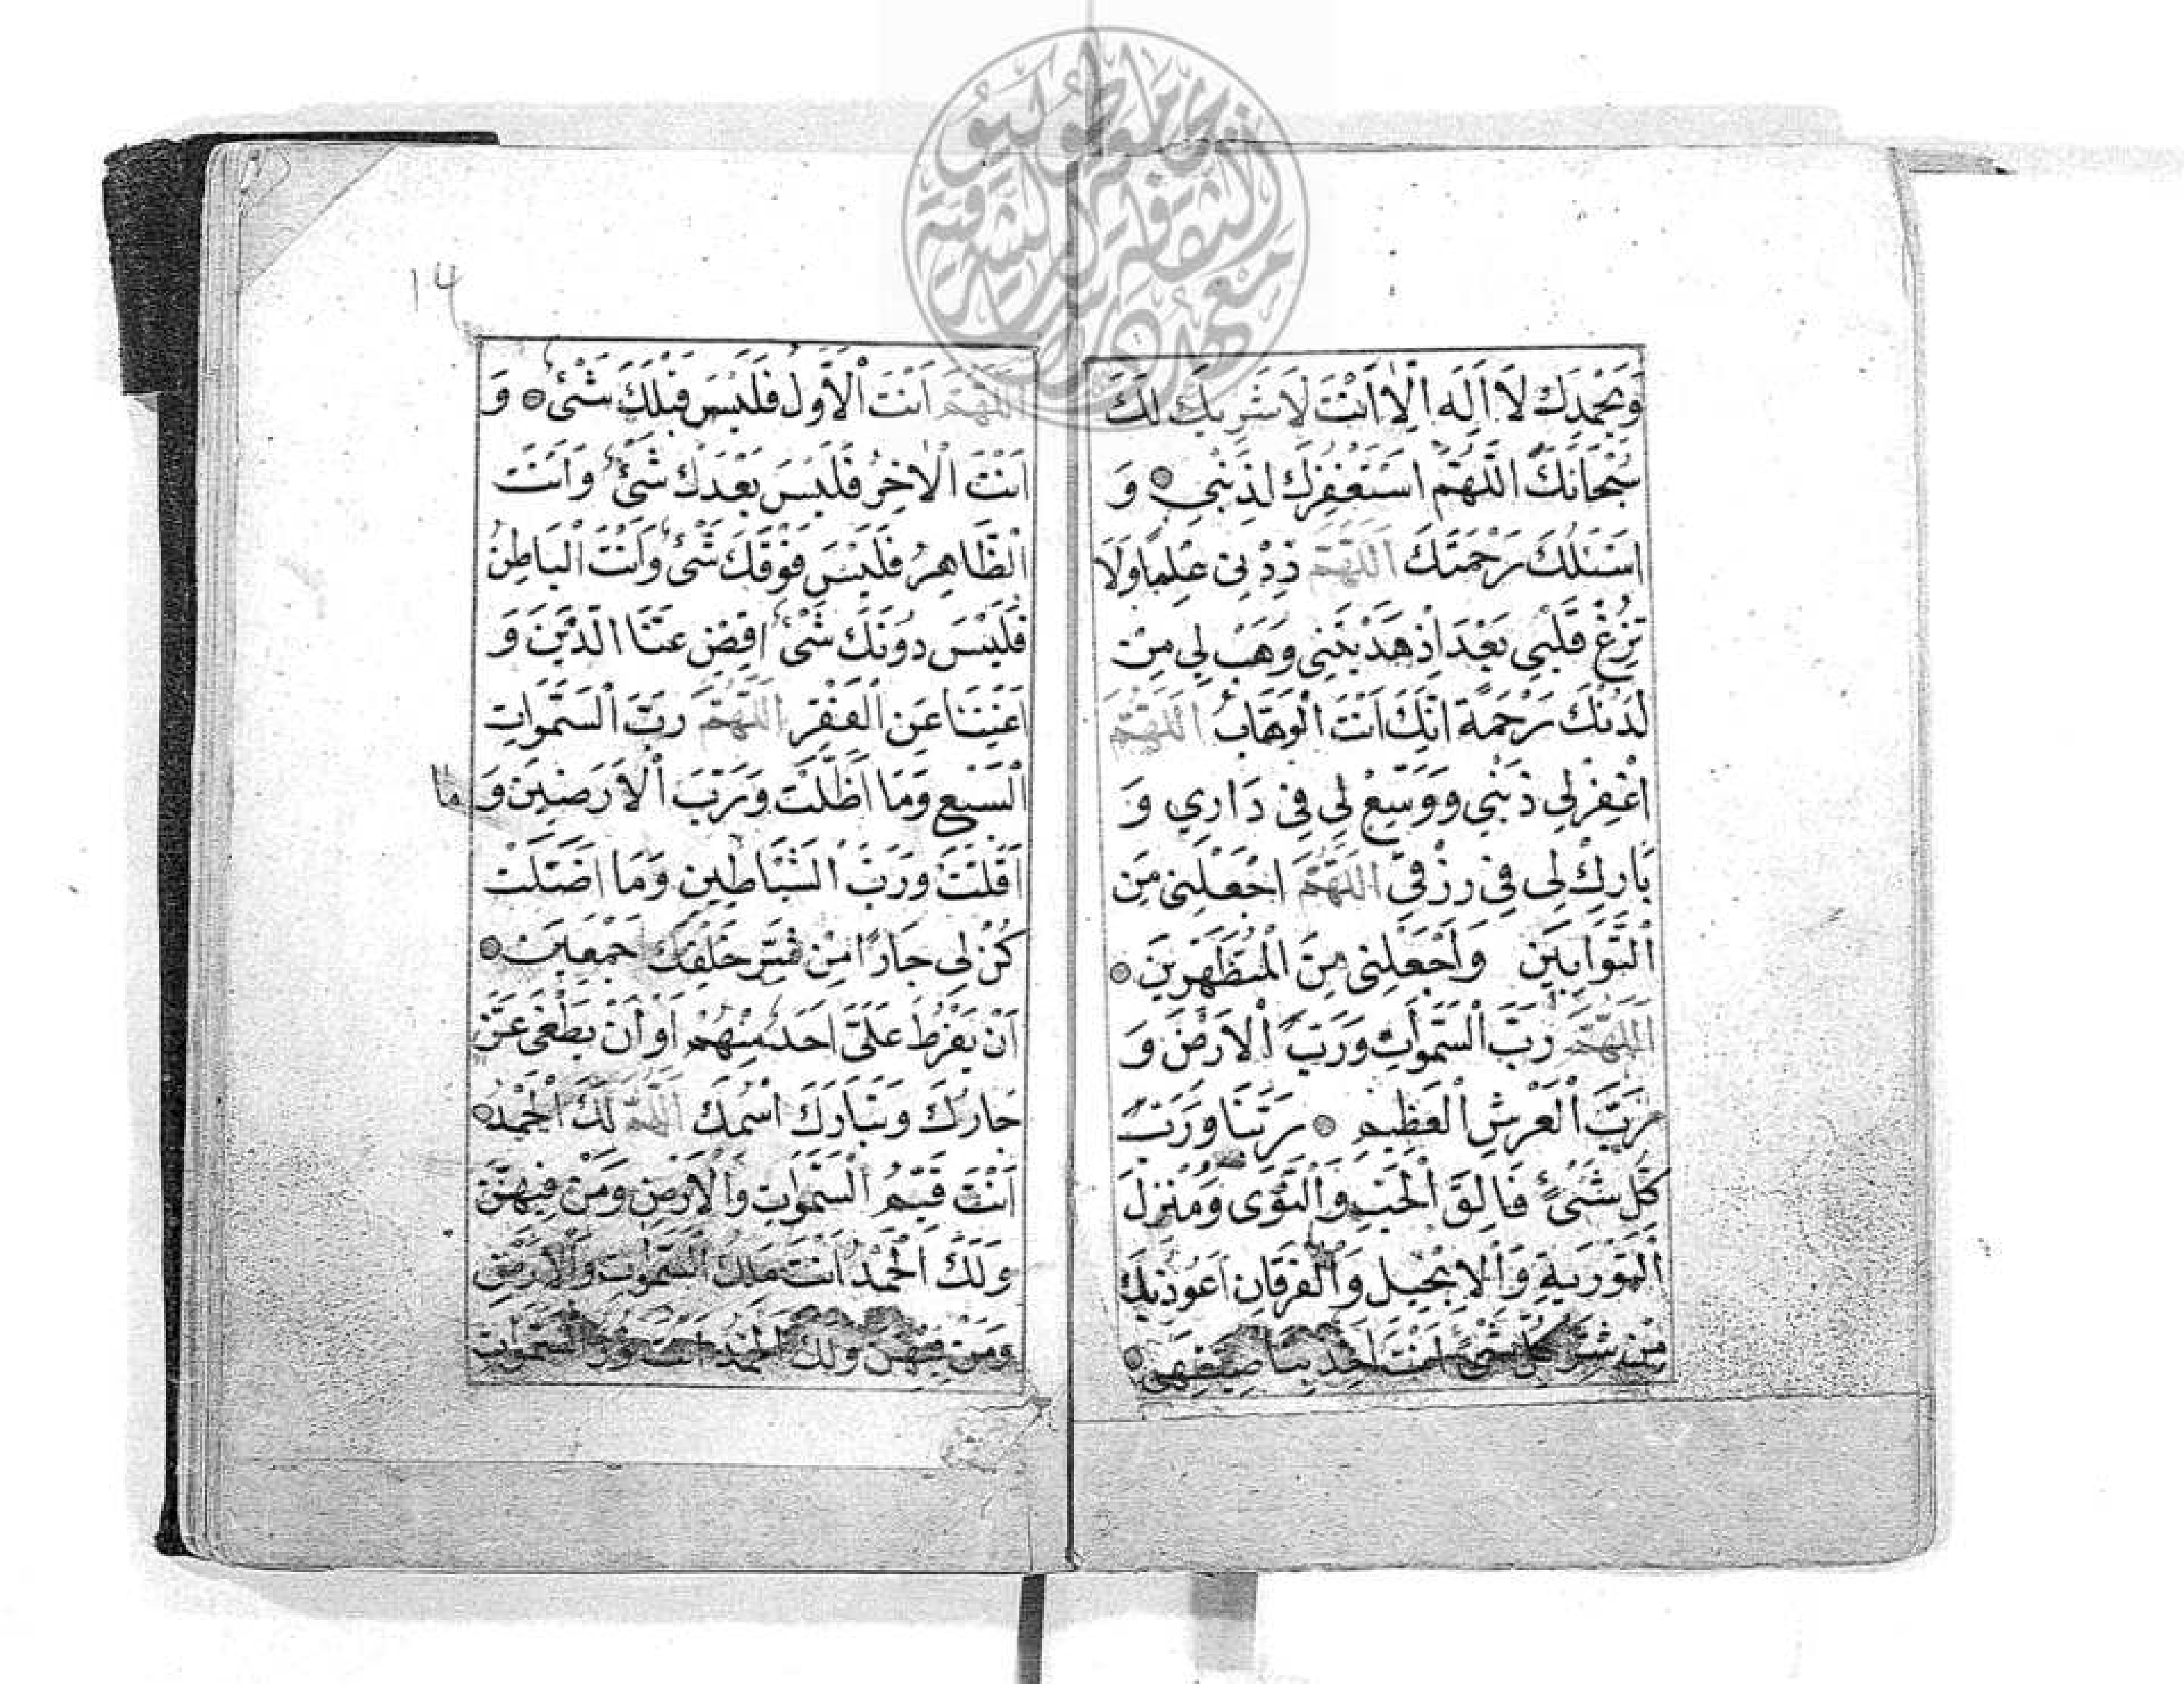 وَبِحَمْدِكَ لَا اِلَهَ اِلَّا اَنْتَ لَا شَرِيكَ لَكَ
سُبْحَانَكَ اللَّهُمَّ اَسْتَغْفِرُكَ لِذَنْبِي وَ
اَسْئَلُكَ رَحْمَتَكَ اَللَّهُمَّ زِدْنِى عِلْمًا وَلَا
تُزِغْ قَلْبِي بَعْدَ اِذْ هَدَيْتَنِي وَهَبْ لِي مِنْ
لَدُنْكَ رَحْمَةً اِنَّكَ اَنْتَ الْوَهَّابُ اَللَّهُمَّ
اغْفِرْ لِي ذَنْبِي وَوَسِّعْ لِي فِي دَارِي وَ
بَارِكْ لِي فِي رِزْقِي اَللَّهُمَّ اجْعَلْنِي مِنَ
التَّوَّابِينَ وَاجْعَلْنِي مِنَ الْمُتَطَهِّرِينَ
اَللَّهُمَّ رَبَّ السَّمَوَاتِ وَرَبَّ الْاَرْضِ وَ
رَبَّ الْعَرْشِ الْعَظِيمِ رَبَّنَا وَرَبَّ
كُلِّ شَىْءٍ فَالِقَ الْحَبِّ وَالنَّوَى وَمُنْزِلَ
التَّوْرَيةِ وَالْاِنْجِيلِ وَالْفُرْقَانِ اَعُوذُ بِكَ
مِنْ شَرِّ كُلِّ شَىْءٍ اَنْتَ اٰخِذٌ بِنَاصِيَتِهِ
اَللَّهُمَّ اَنْتَ الْاَوَّلُ فَلَيْسَ قَبْلَكَ شَىْءٌ وَ
اَنْتَ الْاٰخِرُ فَلَيْسَ بَعْدَكَ شَىْءٌ وَاَنْتَ
الظَّاهِرُ فَلَيْسَ فَوْقَكَ شَىْءٌ وَاَنْتَ الْبَاطِنُ
فَلَيْسَ دُونَكَ شَىْءٌ اِقْضِ عَنَّا الدَّيْنَ وَ
اَغْنِنَا عَنِ الْفَقْرِ اَللَّهُمَّ رَبَّ السَّمَوَاتِ
السَّبْعِ وَمَا اَظَلَّتْ وَرَبَّ الْاَرَضِينَ وَ مَا
اَقَلَّتْ وَرَبَّ الشَّيَاطِينِ وَمَا اَضَلَّتْ
كُنْ لِي جَارًا مِنْ شَرِّ خَلْقِكَ جَمْعِينَ
اَنْ يَفْرُطَ عَلَىَّ اَحَدٌ مِنْهُمْ اَوْ اَنْ يَطْغَى عَزَّ
جَارُكَ وَتَبَارَكَ اسْمُكَ اَللَّهُمَّ لَكَ الْحَمْدُ
اَنْتَ قَيِّمُ السَّمَوَاتِ وَالْاَرْضِ وَمَنْ فِيهِنَّ
وَلَكَ الْحَمْدُ اَنْتَ مَلِكُ السَّمَوَاتِ وَالْاَرْضِ
وَمَنْ فِيهِنَّ وَلَكَ الْحَمْدُ اَنْتَ نُورُ السَّمَوَاتِ